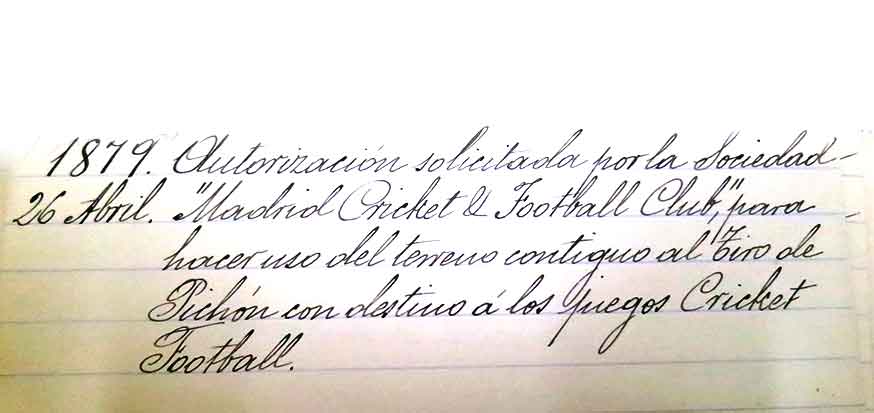 1879. Autorización solicitada por la Sociedad -
26 Abril. "Madrid Cricket & Football Club," para -
hacer uso del terreno contiguo al Tiro de
Pichón con destino á los juegos Cricket
Football.